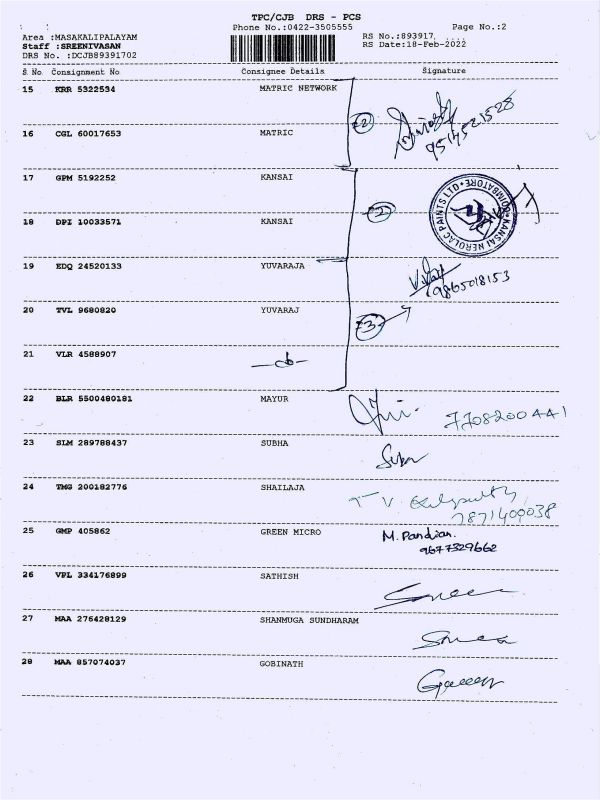 TPC/CJB DRS - PCS
Phone No.:0422-3505555 Page No.:2
Area :MASAKALIPALAYAM RS No.:893917
Staff :SREENIVASAN RS Date:18-Feb-2022
DRS No. :DCJB89391702
S No Consignment No Consignee Details Signature
15 KRR 5322534 MATRIC NETWORK
9514521528
16 CGL 60017653 MATRIC
17 GPM 5192252 KANSAI
KANSAI NEROLAC PAINTS LTD * COIMBATORE *
18 DPI 10033571 KANSAI
19 EDQ 24520133 YUVARAJA
9865018153
20 TVL 9680820 YUVARAJ
21 VLR 4588907
22 BLR 5500480181 MAYUR
7708200441
23 SLM 289788437 SUBHA
24 TMG 200182776 SHAILAJA
T V
7871400038
25 GMP 405862 GREEN MICRO M. Pandian.
9677329662
26 VPL 334176899 SATHISH
27 MAA 276428129 SHANMUGA SUNDHARAM
28 MAA 857074037 GOBINATH